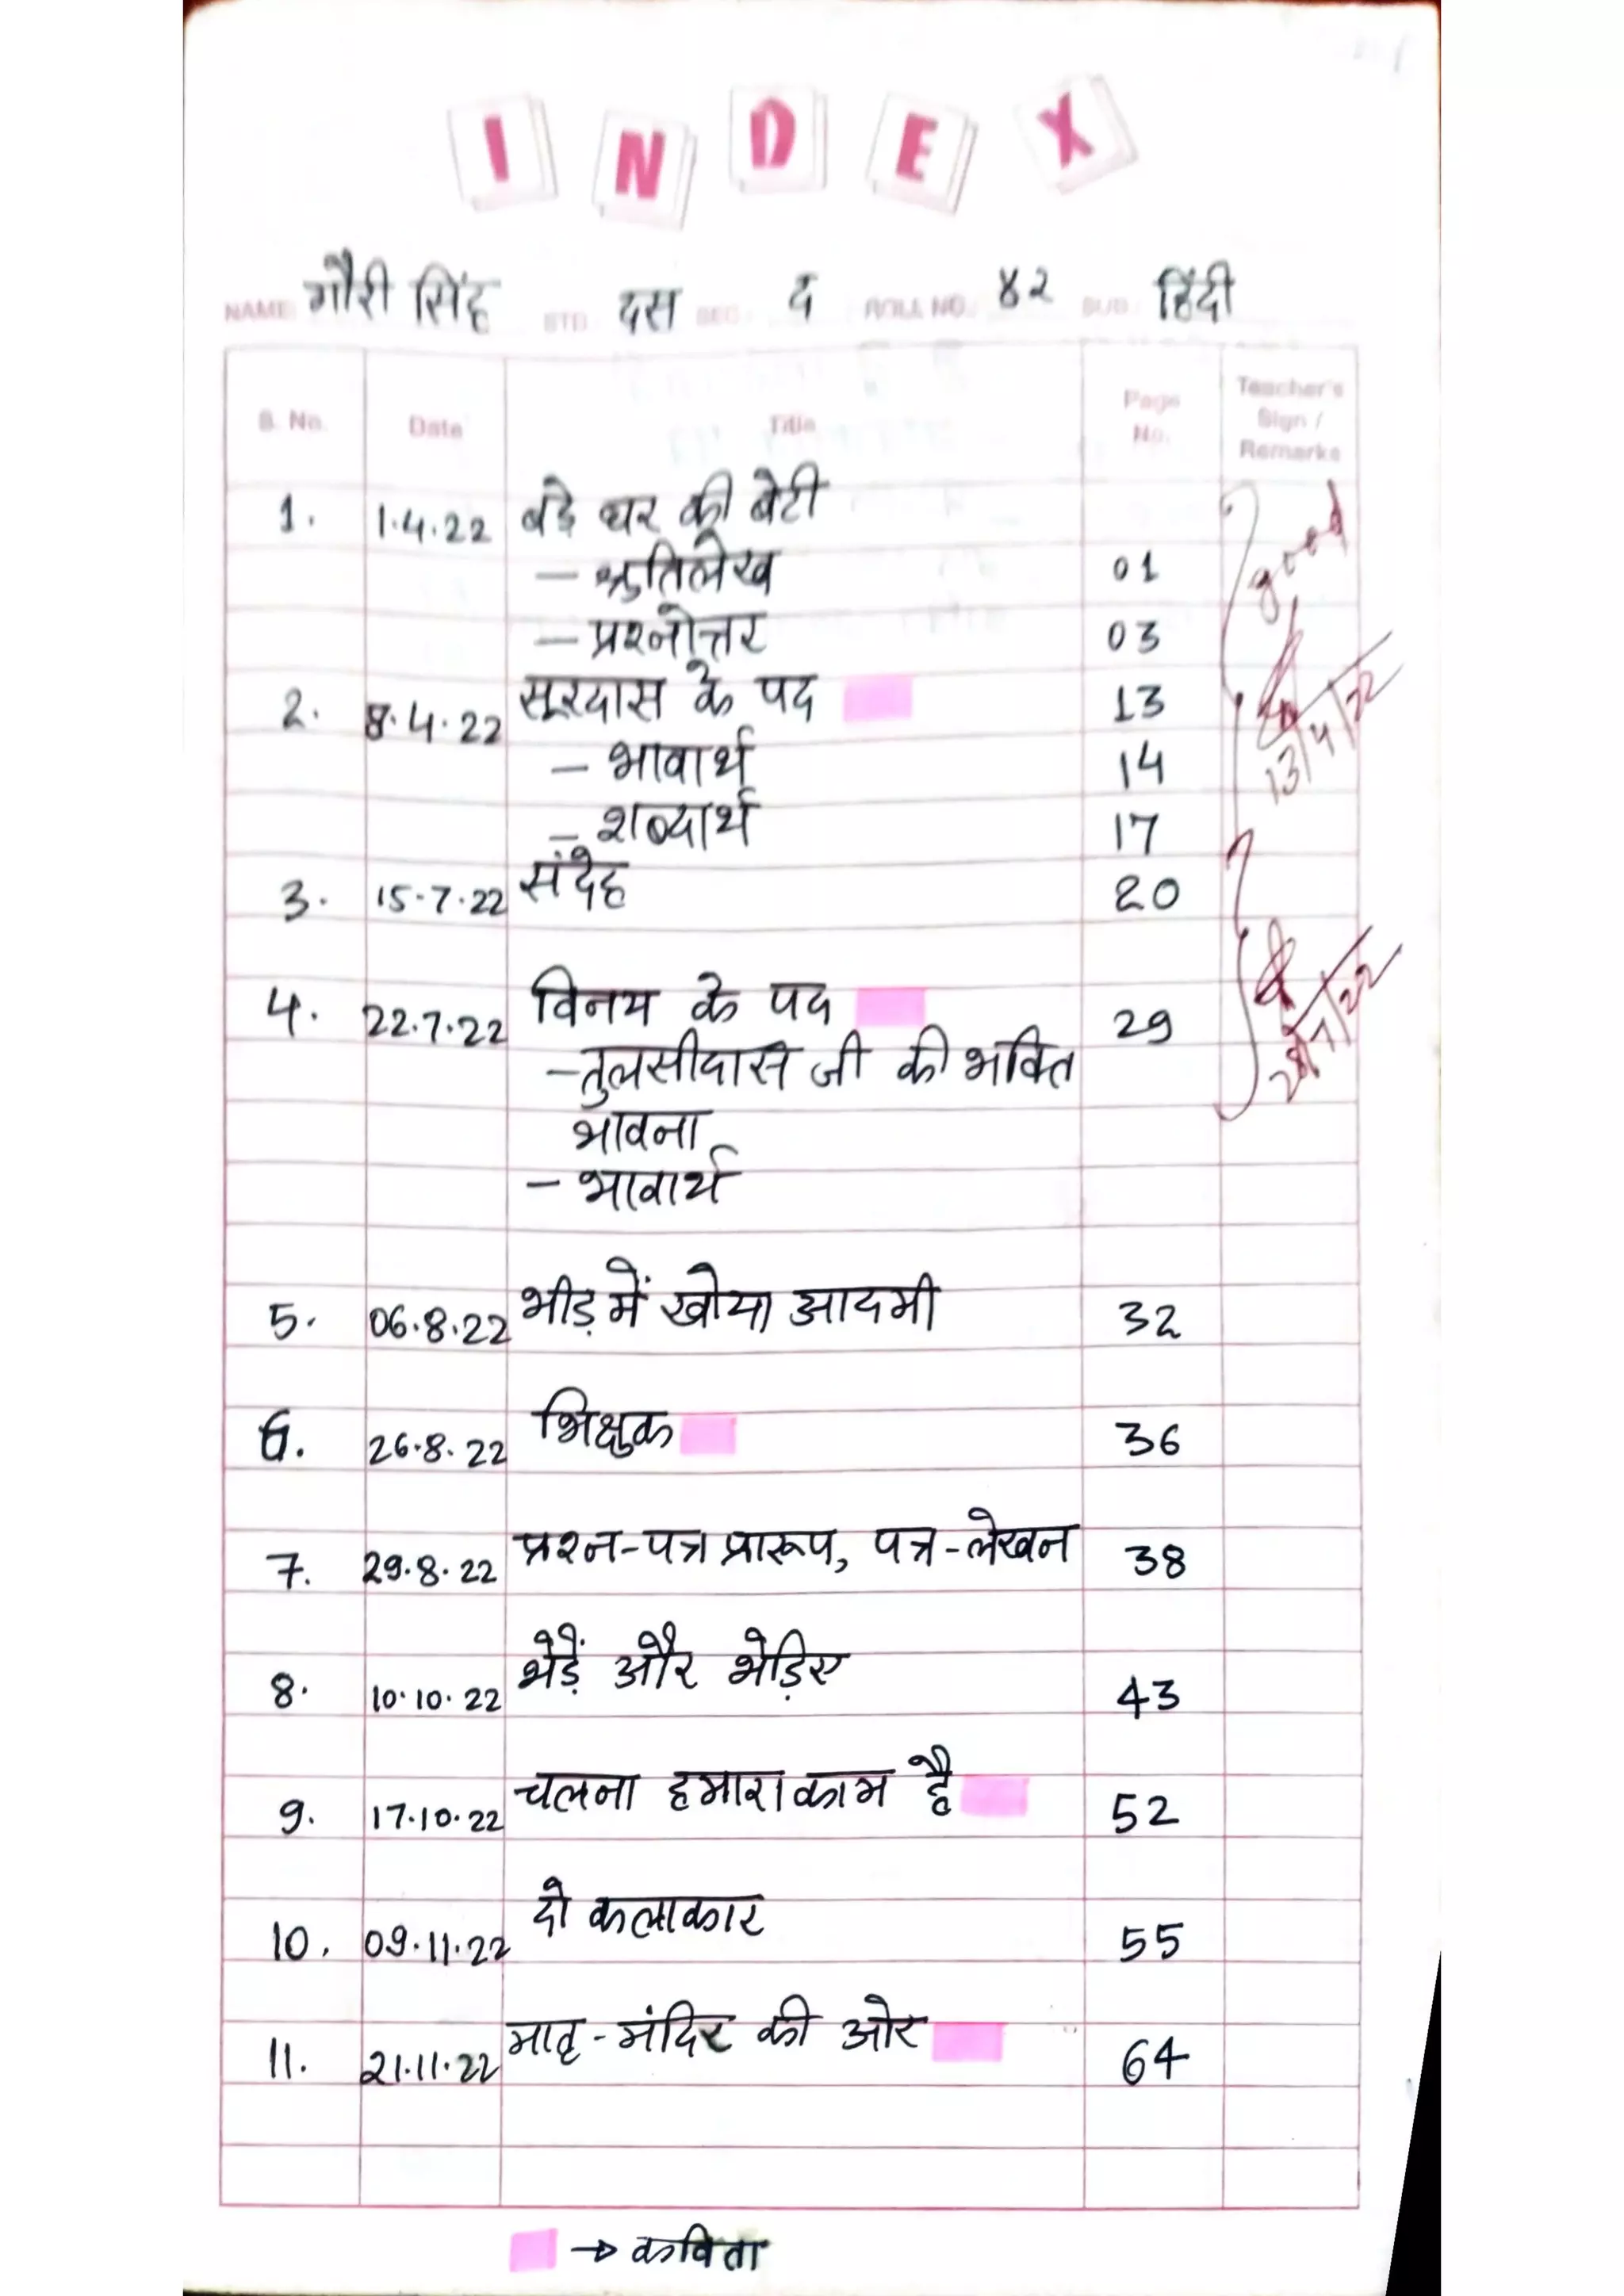 INDEX
NAME: गौरी सिंह STD.: दस SEC.: द ROLL NO.: ४२ SUB.: हिंदी
S. No. Date Title Page No. Teacher's Sign / Remarks
1. 1.4.22 बड़े घर की बेटी
good
- श्रुतिलेख 01
- प्रश्नोत्तर 03
2. 8.4.22 सूरदास के पद 13
13/4/22
- भावार्थ 14
- शब्दार्थ 17
3. 15.7.22 संदेह 20
4. 22.7.22 विनय के पद 29
28/7/22
- तुलसीदास जी की भक्ति
भावना
- भावार्थ
5. 06.8.22 भीड़ में खोया आदमी 32
6. 26.8.22 भिक्षुक 36
7. 29.8.22 प्रश्न-पत्र प्रारूप, पत्र-लेखन 38
8. 10.10.22 भेड़ें और भेड़िए 43
9. 17.10.22 चलना हमारा काम है 52
10. 09.11.22 दो कलाकार 55
11. 21.11.22 मातृ-मंदिर की ओर 64
→ कविता